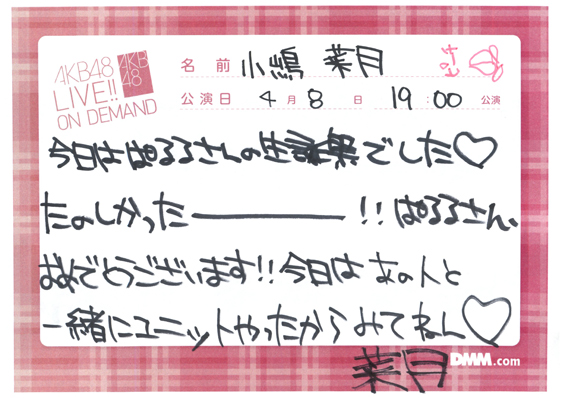 AKB48
LIVE!!
ON DEMAND
AKB
48
名前 小嶋 菜月
公演日 4月8日 19:00 公演
今日はぱるるさんの生誕祭でした♡
たのしかった――――!! ぱるるさん、
おめでとうございます!! 今日は あの人と
一緒にユニットやったから みてねん♡
菜月
DMM.com